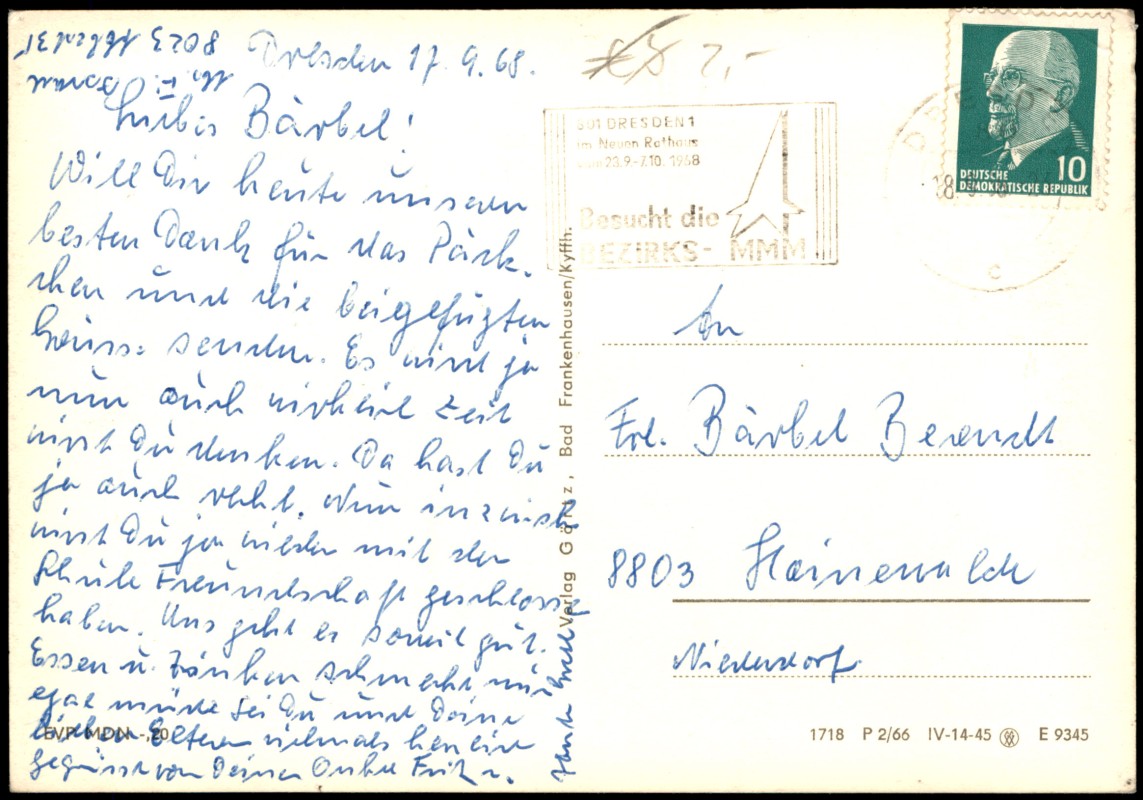 Dresden 17.9.68.
8023
Liebes Bärbel!
Will Dir heute unsern
besten Dank für das Päck-
chen und die beigefügten
Grüsse senden. Es wird ja
nun auch Zeit
wirst Du denken. Da hast Du
ja auch recht. Nun inzwisch
wirst Du ja wieder mit der
Schule Freundschaft geschlosse
haben. Uns geht es somit gut.
Essen u. Trinken schmeckt nur
müde Sei Du und Deine
lieben Eltern vielmals herzlich
gegrüsst von Deinem Onkel Fritz u.
Tante
EVP MDN -,20
Verlag Göritz, Bad Frankenhausen/Kyffh.
2,-
801 DRESDEN 1
im Neuen Rathaus
vom 23.9.-7.10.1968
Besucht die
BEZIRKS-MMM
DRESDEN
c
10
DEUTSCHE
DEMOKRATISCHE REPUBLIK
An
Frl. Bärbel Berndt
8803 Hainewalde
Niederdorf
1718 P 2/66 IV-14-45 E 9345